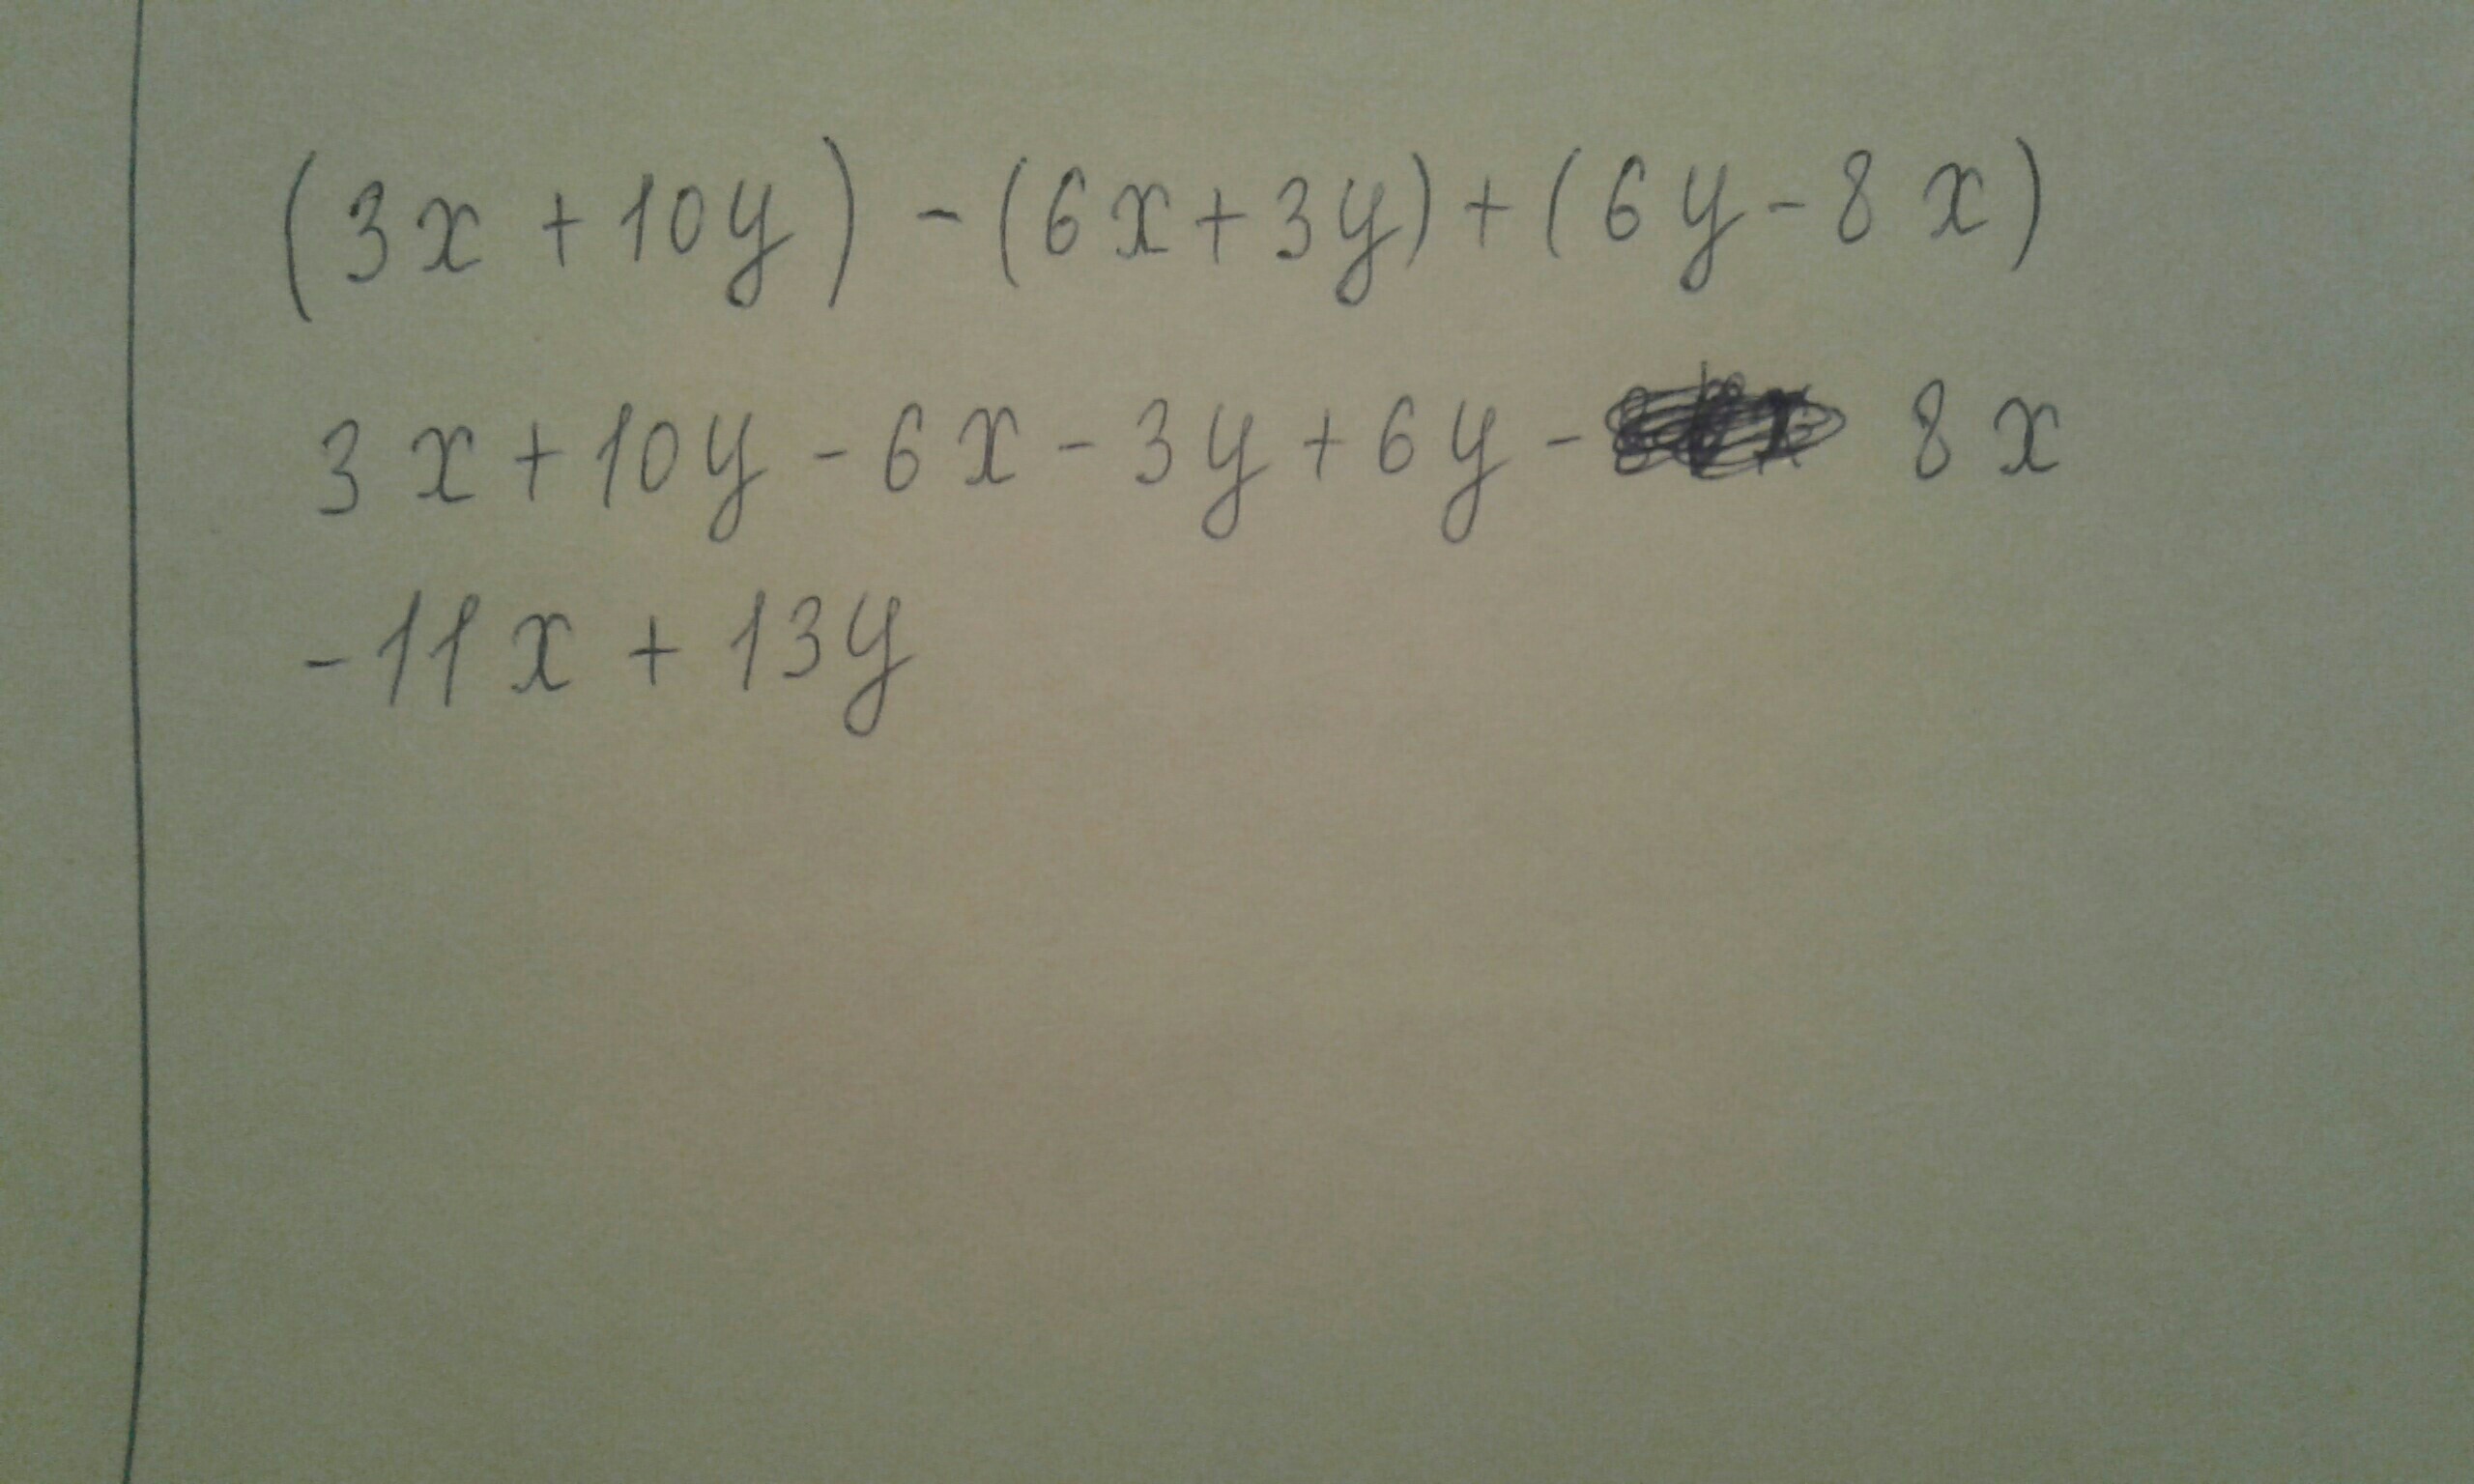 (3x + 10y) - (6x + 3y) + (6y - 8x)
3x + 10y - 6x - 3y + 6y - 8x
-11x + 13y